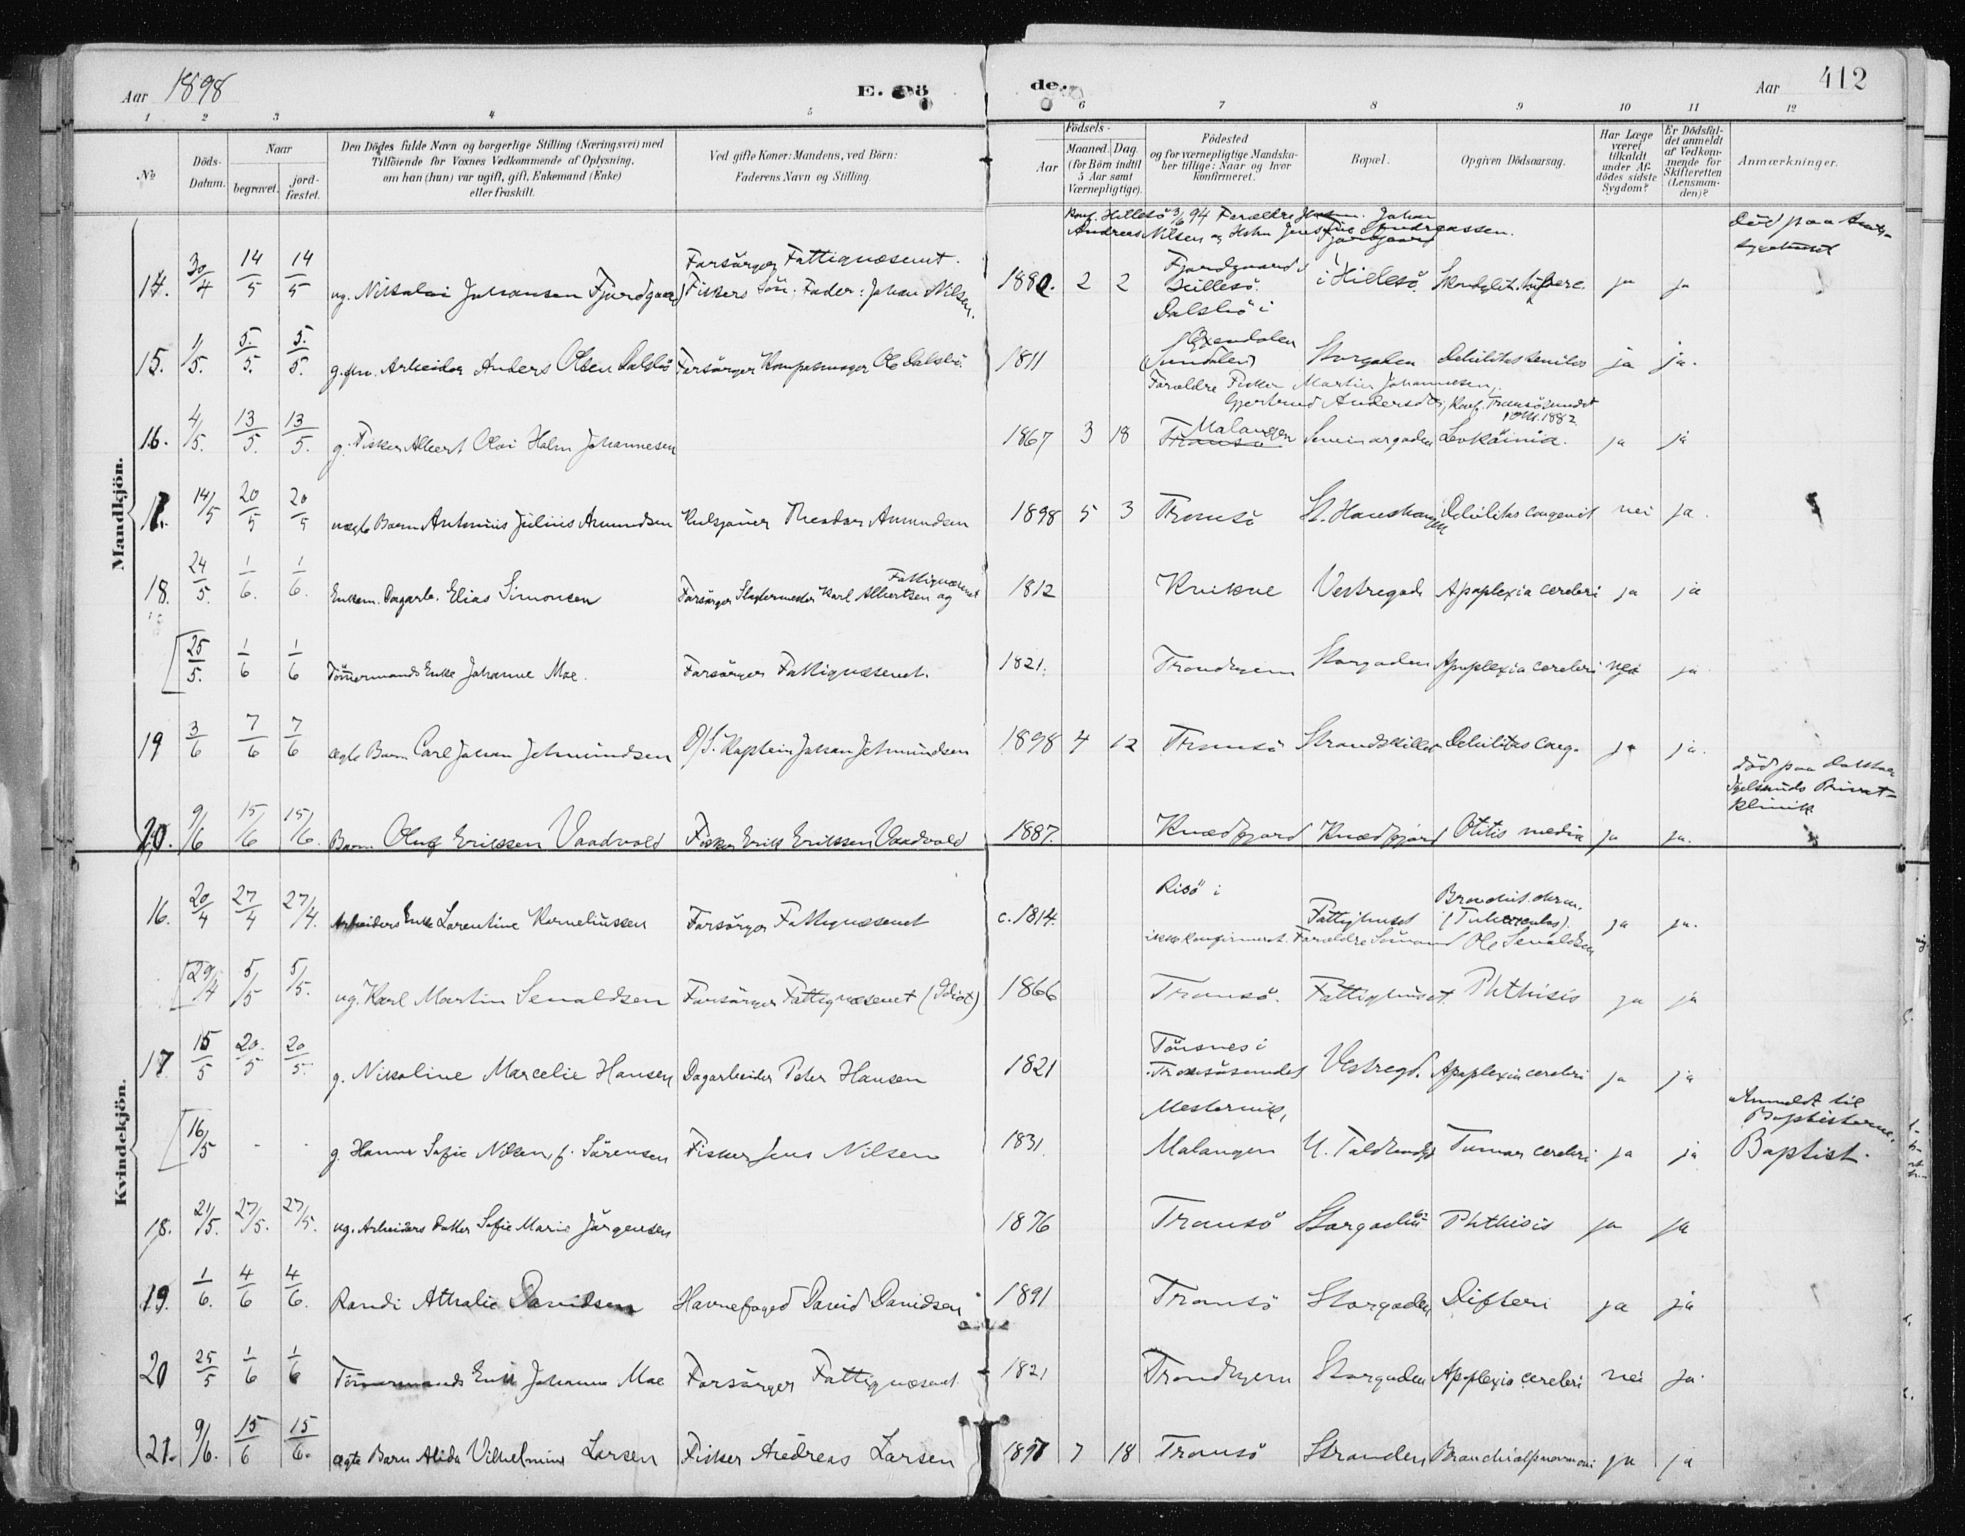 Aar 1898
E. Dö
de.
Aar 412
1 2 3 4 5 6 7 8 9 10 11 12
No
Döds-Datum.
Naar
begravet.
jord-fæstet.
Den Dödes fulde Navn og borgerlige Stilling (Næringsvei) med
Tilföiende for Voxnes Vedkommende af Oplysning,
om han (hun) var ugift, gift, Enkemand (Enke)
eller fraskilt.
Ved gifte Koner: Mandens, ved Börn:
Faderens Navn og Stilling.
Födsels-
Aar
Maaned. Dag.
(for Börn indtil
5 Aar samt
Værnepligtige).
Födested
og for værnepligtige Mandska-
ber tillige: Naar og hvor
konfirmeret.
Bopæl.
Opgiven Dödsaarsag.
Har Læge
været
tilkaldt
under Af-
dödes sidste
Sygdom?
Er Dödsfal-
det anmeldt
af Vedkom-
mende for
Skifteretten
(Lensman-
den)?
Anmærkninger.
Mandkjön.
Konf. Hillesö 3/6 94 Forældre Johan
Andreas Nilsen og Andreassen.
Död paa
14. 30/4 14/5 14/5 ug. Nikolai Johansen Fjordgaard Forsörger Fattigvæsenet. Fiskers Sön. Fader: Johan Nilsen. 1880. 2 2 Fjordgaard i Hillesö. i Hillesö. ja ja
15. 1/5. 5/5. 5/5. Arbeider Anders Olsen Dalsbö Forsörger Kompasmager Ole Dalsbö 1811 Dalsbö i Sundalen Storgaden Debilitas senilis ja ja.
Forældre Fisker Martin Johannesen,
Gjertrud Andersdtr, Konf. Tromsösundet 1882
16. 4/5. 13/5. 13/5. g. Fisker Albert Olai Holm Johannesen 1867 3 18 Tromsö Malangen Seminargaden Leukämia. ja ja
17. 14/5 20/5 20/5 uægte Barn Antonius Julius Amundsen Theodor Amundsen 1898 5 3 Tromsö St. Hanshaugen Debilitas congenit nei ja.
18. 24/5. 1/6. 1/6. Enkem. Dagarb. Elias Simonsen Forsörger Slagtermester Karl Albertsen og Fattigvæsenet 1812 Kvikne Vestregade Apoplexia cerebri ja ja
25/5. 1/6 1/6 Tömmermands Enke Johanne Moe. Forsörger Fattigvæsenet. 1821. Trondhjem Storgaden Apoplexia cerebri nei ja
19 3/6 7/6 7/6 ægte Barn Carl Johan Jehmundsen D/S. Kaptein Johan Jehmundsen 1898 4 12 Tromsö Strandskillet Debilitas cong. ja ja.
död paa Doktor
Privat-
klinik
20. 9/6 15/6 15/6. Barn Oluf Eriksen Vaadvold Fisker Erik Eriksen Vaadvold 1887. Kvædfjord Kvædfjord Otitis media ja ja.
Kvindekjön.
16. 20/4 27/4 27/4. Arbeiders Enke Lorentine Korneliussen Forsörger Fattigvæsenet c. 1814. Risö i Fattighuset Bronchit. chron. (Tuberculos). ja ja.
ikke konfirmeret. Forældre Sömand Ole Senaldsen
29/4 5/5 5/5. ug. Karl Martin Senaldsen Forsörger Fattigvæsenet (Idiot) 1866 Tromsö. Fattighuset. Phthisis ja ja
17 15/5 20/5 20/5. g. Nikoline Marcelie Hansen Dagarbeider Peter Hansen 1821 Tönsnes i Tromsösundet Vestregd. Apoplexia cerebri ja ja
Anmeldt til
Baptisterne.
16/5 - - g. Hanna Sofie Nilsen, f. Sörensen Fisker Jens Nilsen 1831. Mestervik, Malangen Tumor cerebri ja ja Baptist.
18. 21/5. 27/5. 27/5. ug. Arbeiders Datter Sofie Marie Jörgensen 1876 Tromsö Storgaden Phthisis ja ja
19. 1/6. 4/6 4/6. Randi Athalie Davidsen Havnefoged David Davidsen 1891 Tromsö Storgaden Difteri ja ja
20 25/5 1/6 1/6 Tömmermands Enke Johanna Moe Forsörger Fattigvæsenet 1821 Trondhjem Storgaden Apoplexia cerebri nei ja.
21. 9/6. 15/6 15/6. ægte Barn Alida Vilhelmine Larsen Fisker Andreas Larsen 1897 7 18 Tromsö Stranden Bronchialpneumoni ja ja